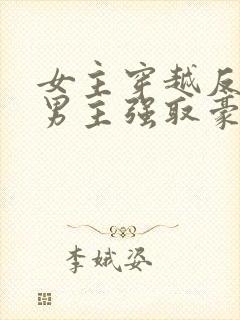 女主穿越反
男主强取豪
李娥姿